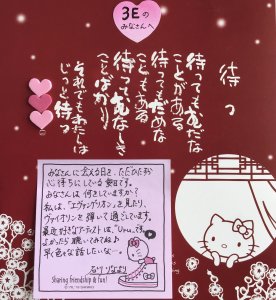 3Eの
みなさんへ
待つ
待ってもむだな
ことがある
待ってもだめな
こともある
待ってむなしき
ことばかり
それでもわたしは
じっと待つ
みなさんに会える日を、ただひたすら
心待ちにしている毎日です。
みなさんは何をしていますか？
私は、「エヴァンゲリオン」を見たり、
ヴァイオリンを弾いて過ごしています。
最近好きなアーティストは、「Uru」です。
よかったら聴いてみてね♪
早く色々な話したいな…。
Sharing friendship & fun!